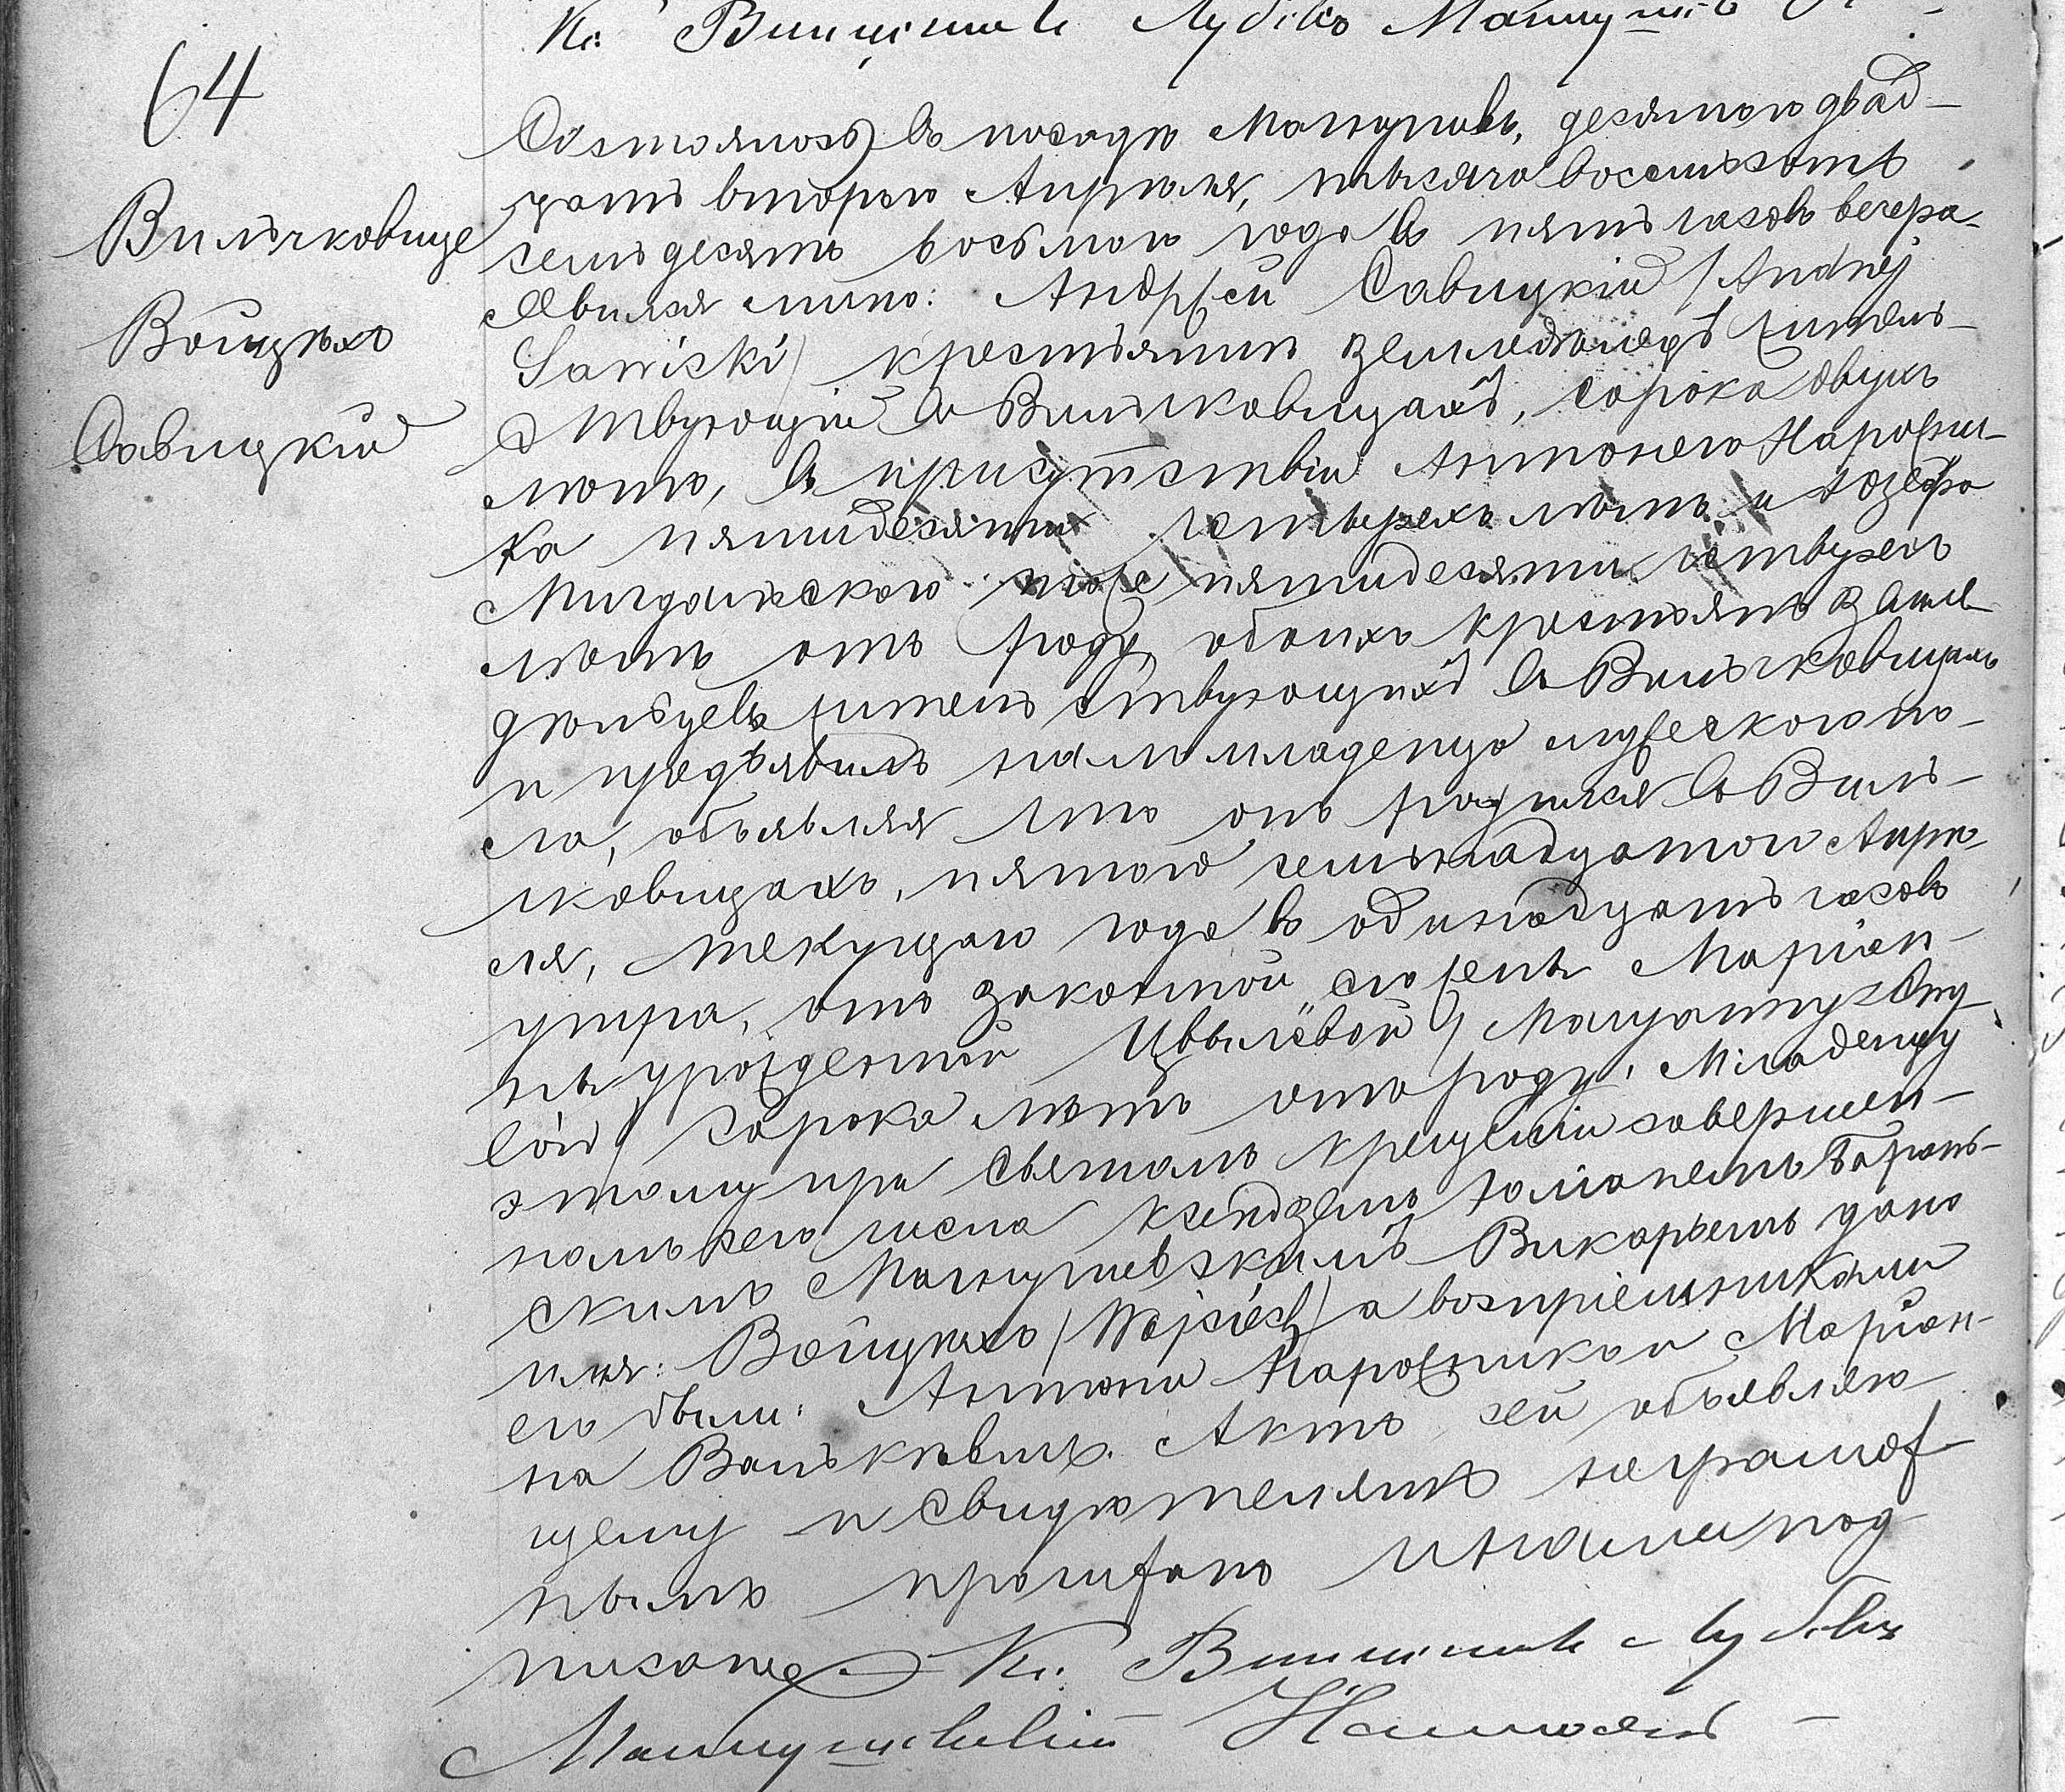 Кс: Винценте Лубко
64
Вильчковице
Войцѣхъ
Савицкій
Состоялось въ посадѣ Магнушевъ, десятаго двад-
цать втораго Апрѣля, тысяча восемьсотъ
семьдесятъ восьмаго года въ пять часовъ вечера.
Явился лично: Андржей Савицкій /Andrzej
Sawiski/ крестьянинъ земледѣлецъ житель-
ствующій въ Вильчковицахъ, сорока двухъ
лѣтъ, въ присутствіи Антонего Нарожни-
ка пятидесяти четырехъ лѣтъ и Юзефа
Мигдальского тоже пятидесяти четырехъ
лѣтъ отъ роду, обоихъ крестьянъ земле-
дѣльцевъ жительствующихъ въ Вильчковицахъ
и предъявилъ намъ младенца мужескаго по-
ла, объявляя что онъ родился въ Виль-
чковицахъ, пятаго семнадцатаго Апрѣ-
ля, текущаго года въ одинадцать часовъ
утра, отъ законной его жены Маріан-
ны урожденной Цвылёвой /Maryanny z Cwy-
lów/ сорока лѣтъ отъ роду. Младенцу
этому при Святомъ крещеніи совершен-
номъ сего числа Ксендземъ Барань-
скимъ Магнушевскимъ Викарьемъ дано
имя: Войцѣхъ /Wojciech/ а воспріемниками
его были: Антони Нарожникъ и Маріан-
на Актъ сей объявляю-
щему и свидѣтелямъ неграмот-
нымъ прочитанъ и нами под-
писанъ. Кс: Винценте Лубко